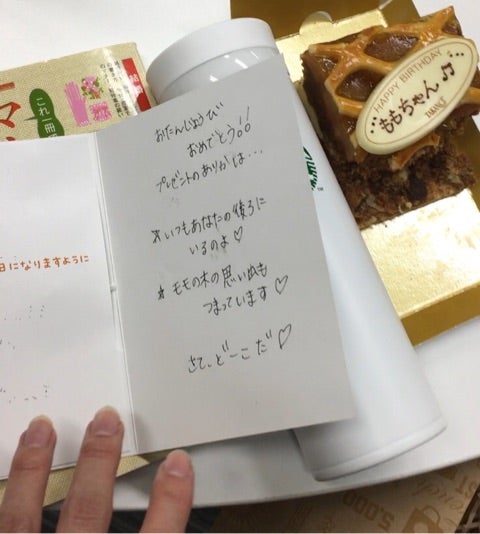 おたんじょうび
おめでとう!!
プレゼントのありかは…
*いつもあなたの後ろに
いるのよ♡
*モモの木の思い出も
つまっています♡
さて、どーこだ♡
日になりますように
HAPPY BIRTHDAY
ももちゃん♪
これ一冊
5,000
TM